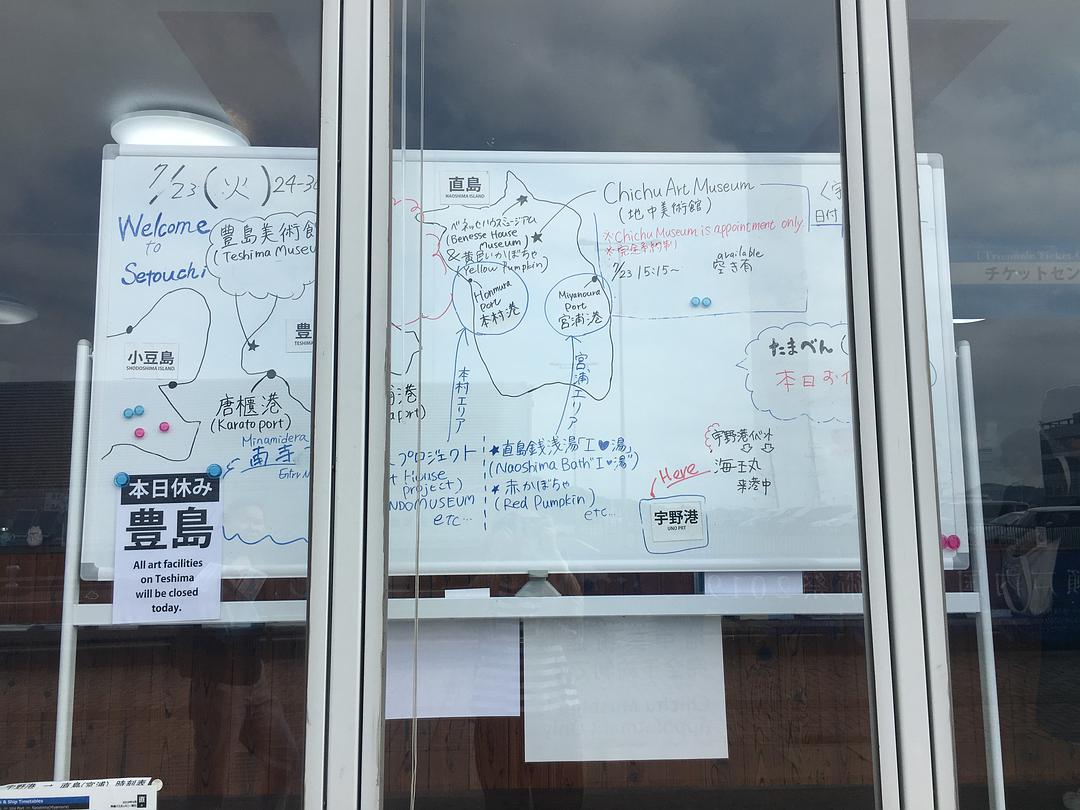 7/23(火)24-3
Welcome
to
Setouchi
豊島美術館
(Teshima Museu
小豆島
SHODOSHIMA ISLAND
豊
TESHIM
唐櫃港
(Karato port)
Minamidera
南寺
Entry
本日休み
豊島
All art facilities
on Teshima
will be closed
today.
直島
NAOSHIMA ISLAND
ベネッセハウスミュージアム
(Benesse House
Museum)
&黄色いかぼちゃ
(Yellow Pumpkin)
Honmura
Port
本村港
Miyanoura
Port
宮浦港
本村エリア
宮浦エリア
港
port)
プロジェクト
t House
project)
NDO MUSEUM
etc...
★直島銭湯「I♥湯」
(Naoshima Bath "I♥湯")
★赤かぼちゃ
(Red Pumpkin)
etc...
Chichu Art Museum
(地中美術館)
※Chichu Museum is appointment only.
※完全予約制
7/23 15:15~
available
空き有
日付
たまべん
本日お
宇野港イベント
海王丸
来港中
Here
宇野港
UNO PRT
チケットセン
宇野港 → 直島(宮浦) 時刻表
& Ship Timetables